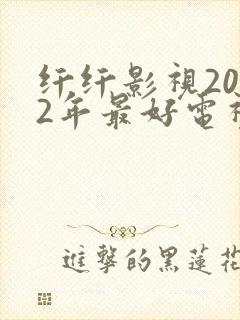 纤纤影視20
2年最好電視
進擊的黑蓮花